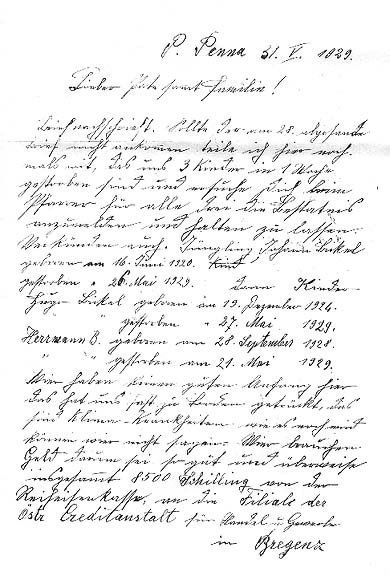 P. Penna 31. V. 1929.
Lieber Pate samt Familie!
Briefnachschrift. Sollte der am 28. abgesandte
Brief nicht ankomen teile ich hier noch-
mals mit, das uns 3 Kinder in 1 Woche
gestorben sind und ersuche dich beim
Pfarrer für alle drei die Bestatnis
anzumelden und halten zu lassen.
Verkünden auch. Jüngling Johann Bickel
geboren am 16. Juni 1920. Kind
gestorben " 26 Mai 1929. dann Kinder
Hugo Bickel geboren im 19. Dezember 1924.
" gestorben " 27. Mai 1929.
Herrmann B. geboren am 28. September 1928.
" " gestorben am 21. Mai 1929.
Wier haben einen guten Anfang hier
das hat uns fast zu Boden gedrückt, das
sind Klima-Krankheiten wie es noch wird
können wier nicht sagen. Wier brauchen
Geld darum sei so gut und überweise
insgesamt 8500 Schilling von der
Reifeisenkasse, an die Filiale der
Östr Creditanstalt für Handel u Gewerbe
in Bregenz